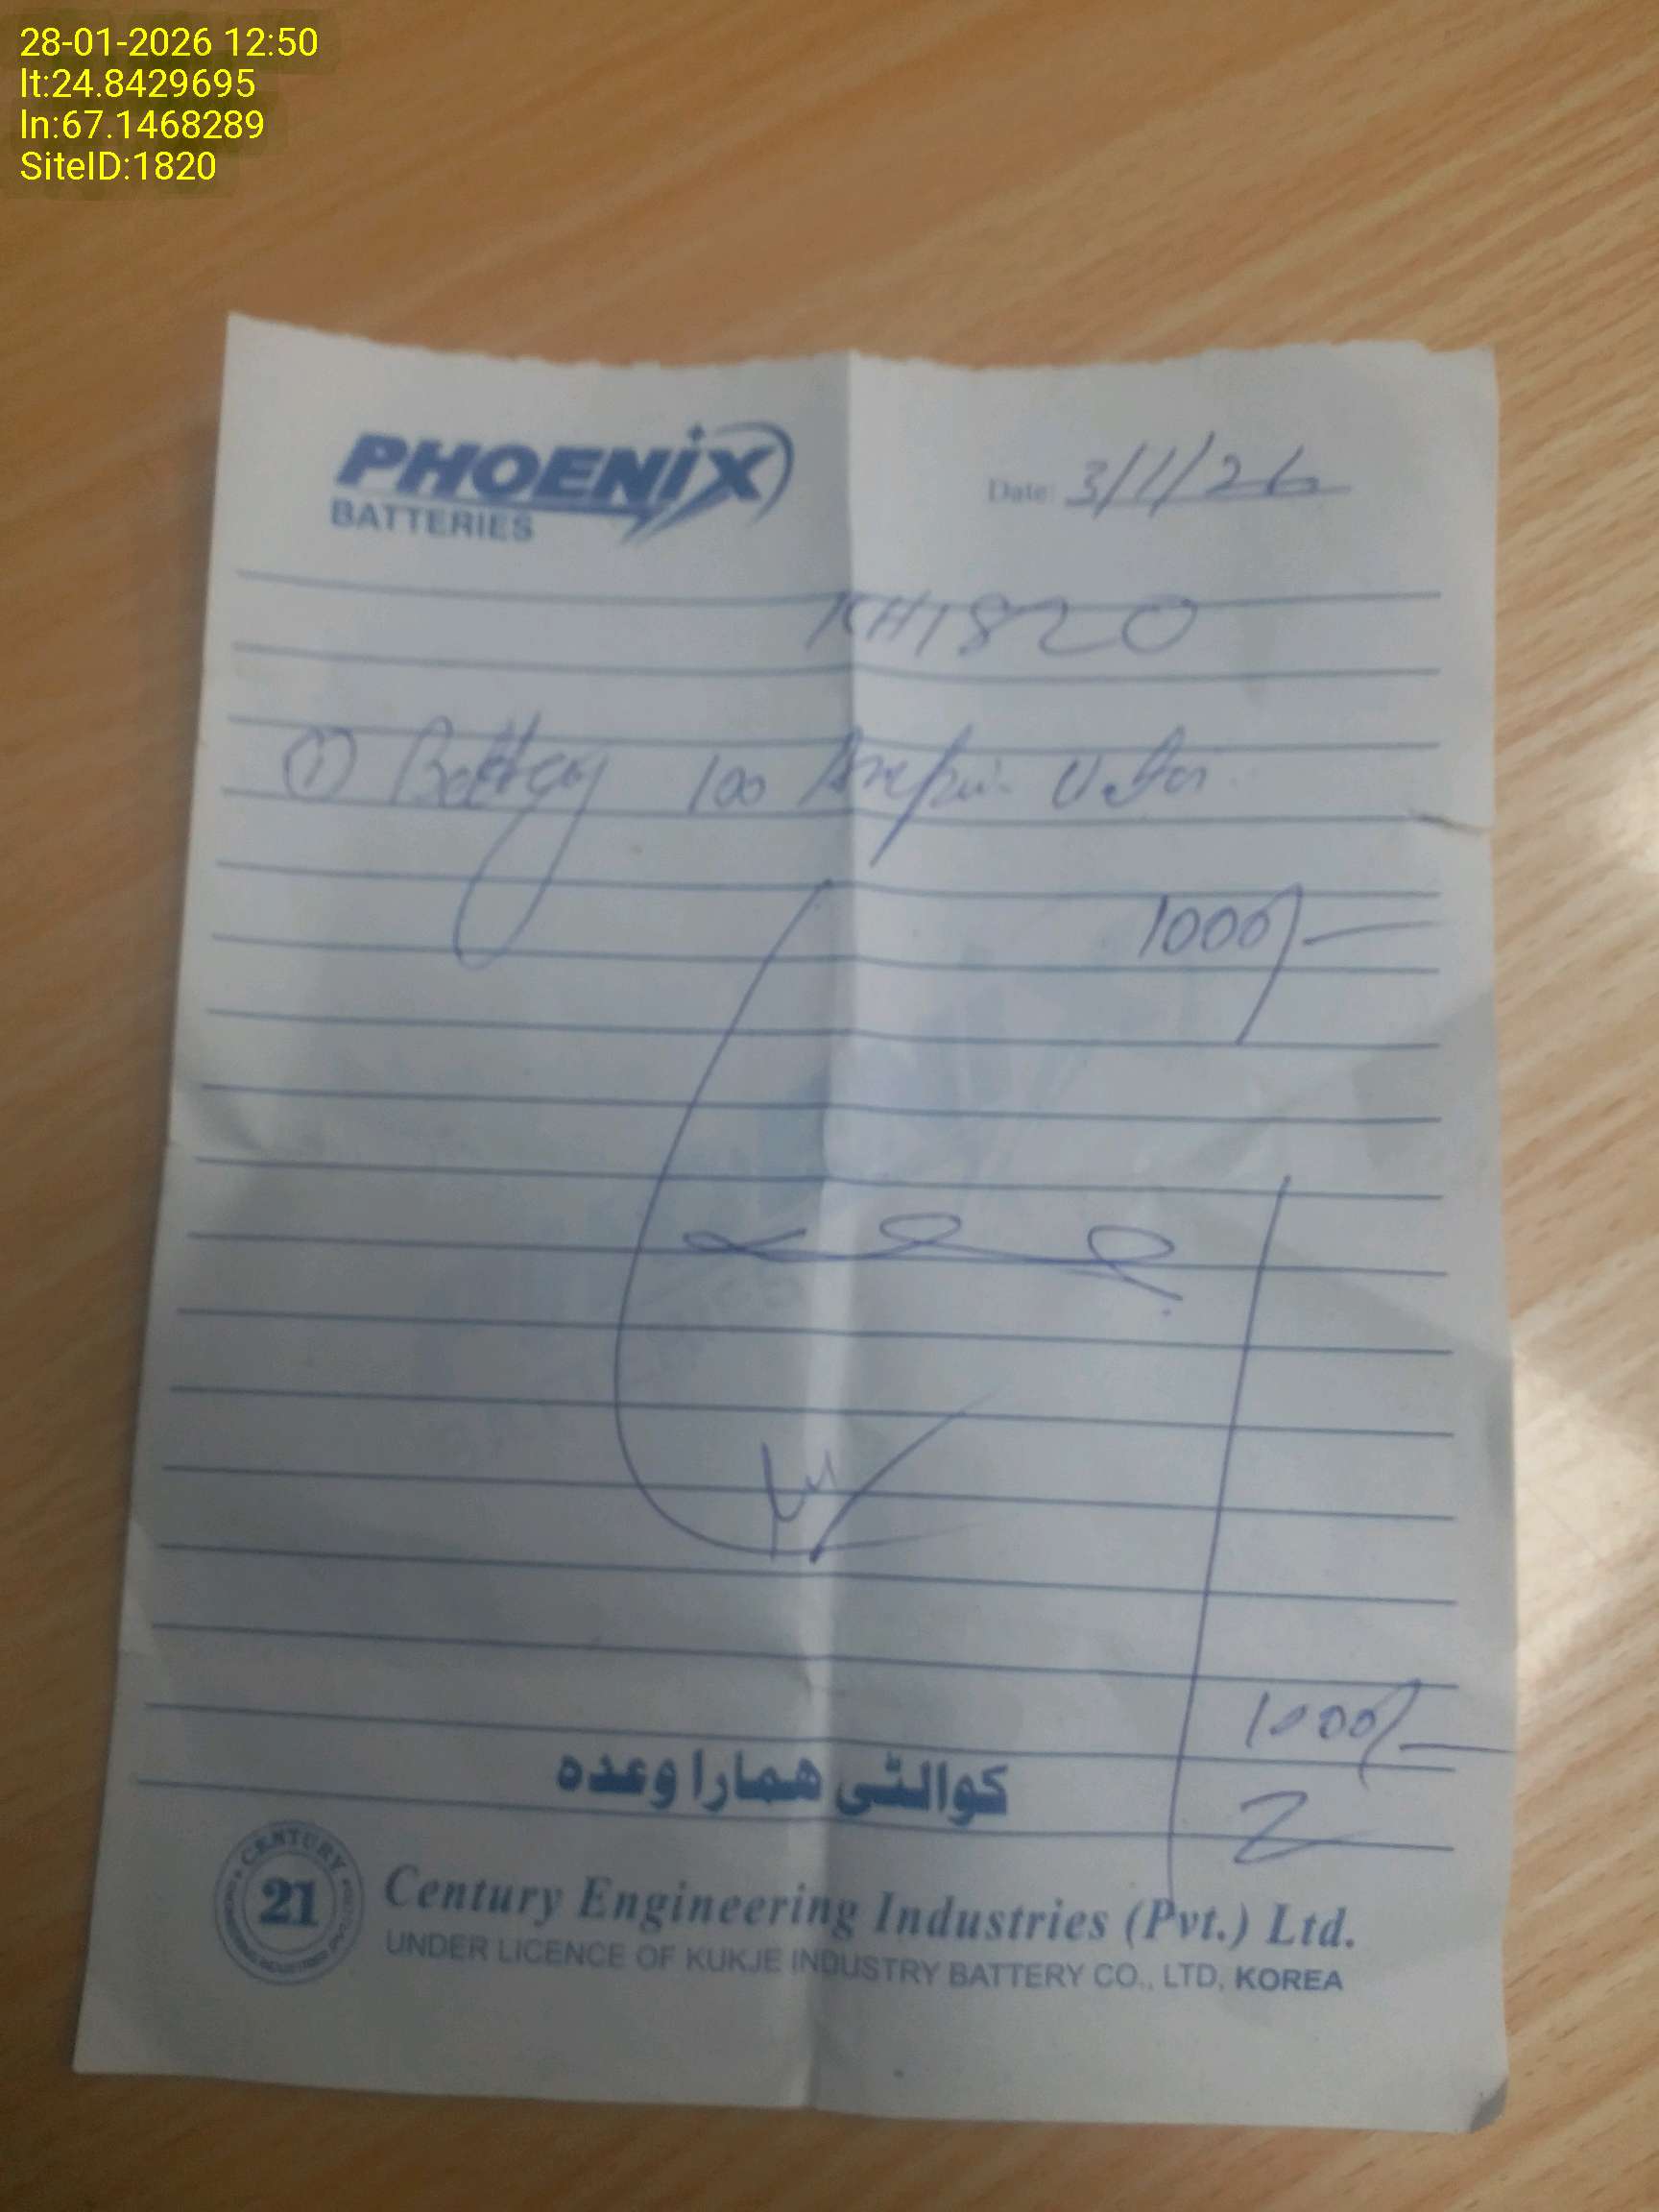 28-01-2026 12:50
lt:24.8429695
ln:67.1468289
SiteID:1820
PHOENIX
BATTERIES
Date: 3/1/26
KH1820
① Battery 100
1000/-
1000/-
کوالٹی ھمارا وعدہ
CENTURY
21
Century Engineering Industries (Pvt.) Ltd.
UNDER LICENCE OF KUKJE INDUSTRY BATTERY CO., LTD, KOREA